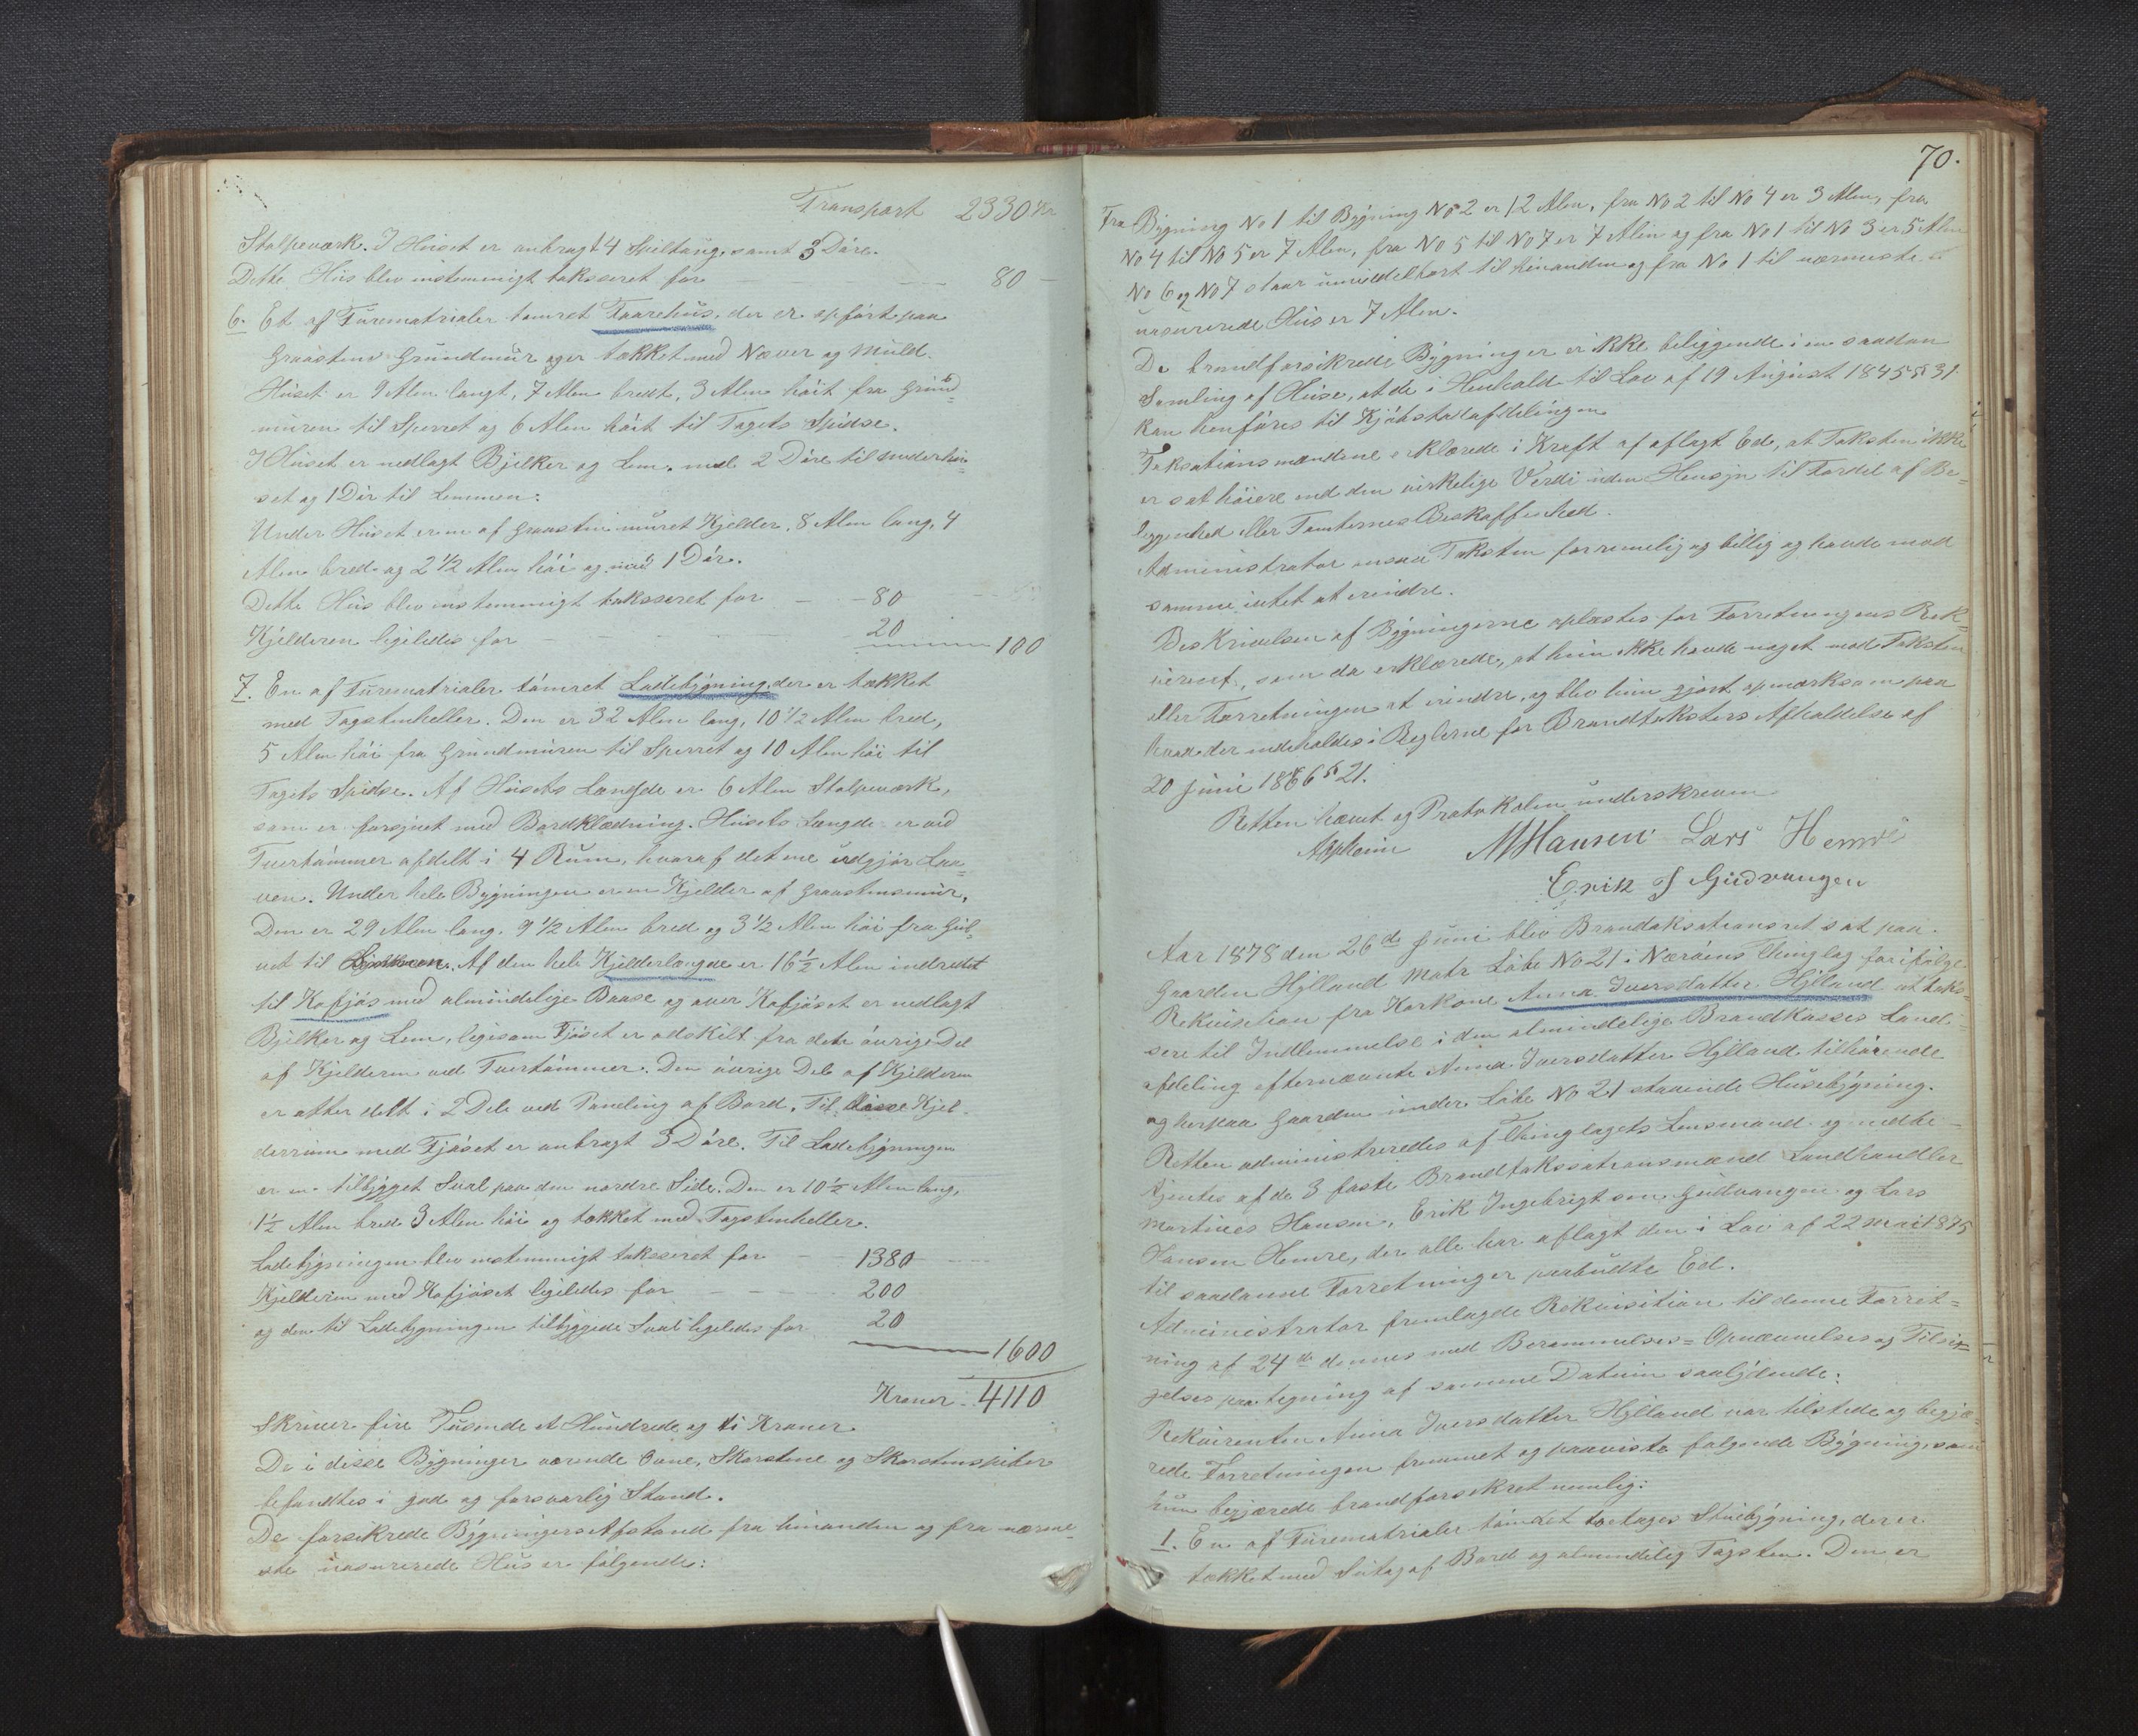 Transport 2330 Kr
Stolpeværk. I Huset er anbragt 4 Spiltoug, samt 3 Døre.
Dette Hus blev enstemmigt taksseret for 80
6. Et af Furematrialer tømret Faarehus, der er opført paa
Graastens Grundmur og er tækket med Næver og Muld.
Huset er 9 Alen langt, 7 Alen bredt, 3 Alen høit fra Grund=
muren til Sperret og 6 Alen høit til Tagets Spidse.
I Huset er nedlagt Bjelker og Lem, med 2 Døre til underhu=
set og 1 Dør til Lemmen.
Under Huset er en af Graasten muret Kjelder, 8 Alen lang, 4
Alen bred og 2 1/2 Alen høi og med 1 Dør.
Dette Hus blev enstemmigt taksseret for 80
Kjelderen ligeledes for 20
100
7. En af Furematrialer tømret Ladebygning, der er tækket
med Tagstenheller. Den er 32 Alen lang, 10 1/2 Alen bred,
5 Alen høi fra Grundmuren til Sperret og 10 Alen høi til
Tagets Spidse. Af Husets Længde er 6 Alen Stolpeværk,
som er forsynet med Bordklædning. Husets Længde er ved
Tvertømmer afdelt i 4 Rum, hvoraf det ene udgjør Laa=
ven. Under hele Bygningen er en Kjelder af Graastensmur.
Den er 29 Alen lang, 9 1/2 Alen bred og 3 1/2 Alen høi fra Gul=
vet til Bjelkerne. Af den hele Kjelderlængde er 16 1/2 Alen indredet
til Kofjøs med almindelige Baase og over Kofjøset er nedlagt
Bjelker og Lem, ligesom Fjøset er adskilt fra dets øvrige Del
af Kjelderen ved Tvertømmer. Den øvrige Del af Kjelderen
er atter delt i 2 Dele ved Paneling af Bord. Til disse Kjel=
derrum med Fjøset er anbragt 3 Døre. Til Ladebygningen
er en tilbygget Sval paa den nordre Side. Den er 10 1/2 Alen lang,
1 1/2 Alen bred 3 Alen høi og tækket med Tagstenheller.
Ladebygningen blev enstemmigt taksseret for 1380
Kjelderen med Kofjøset ligeledes for 200
og den til Ladebygningen tilbyggede Sval ligeledes for 20
1600
Kroner 4110
Skriver fire Tusende et Hundrede og ti Kroner
De i disse Bygninger værende Ovne, Skorstene og Skorstenspiber
befandtes i god og forsvarlig Stand.
De forsikrede Bygningers Afstand fra hinanden og fra nærme=
ste uasurerede Hus er følgende:
70.
Fra Bygning No 1 til Bygning No 2 er 12 Alen, fra No 2 til No 4 er 3 Alen, fra
No 4 til No 5 er 7 Alen, fra No 5 til No 7 er 7 Alen og fra No 1 til No 3 er 5 Alen
No 6 og No 7 staar umiddelbart til hinanden og fra No 1 til nærmeste
uasurerede Hus er 7 Alen.
De brandforsikrede Bygninger er ikke beliggende i en saadan
Samling af Huse, at de i Henhold til Lov af 19 August 1845 § 31
kan henføres til Kjøbstadafdelingen.
Taksationsmændene erklærede i Kraft af aflagt Ed, at Taksten ikke
er sat høiere end den virkelige Verdi uden Hensyn til Fordel af Be=
liggenhed eller Tomternes Beskaffenhed.
Administrator ansaa Taksten for rimelig og billig og havde mod
samme intet at erindre.
Beskrivelsen af Bygningerne oplæstes for Forretningens Rek=
virent, som da erklærede, at hun ikke havde noget mod Taksten
eller Forretningen at erindre, og blev hun gjort opmærksom paa
hvad der indeholdes i Reglerne for Brandtaksters Afholdelse af
20 Juni 1866 § 21.
Retten hævet og Protokolen underskreven
M Hansen Lars Hemre
Erik J Gudvangen
Aar 1878 den 26de Juni blev Brandtaksationsret sat paa
Gaarden Hylland Matr Løbe No 21 i Nærøens Thinglag for ifølge
Rekvisition fra Korkone Anna Iversdatter Hylland at taks=
sere til Indlemmelse i den almindelige Brandkasses Land=
afdeling efternævnte Anna Iversdatter Hylland tilhørende
og herpaa Gaarden under Løbe No 21 staaende Husebygning.
Retten administreredes af Thinglagets Lensmand og medbe=
tjentes af de 3 faste Brandtakssationsmænd Landhandler
Martines Hansen, Erik Ingebrigtsen Gudvangen og Lars
Hansen Hemre, der alle har aflagt den i Lov af 22 Mai 1875
til saadanne Forretninger paabudte Ed.
Administrator fremlagde Rekvisition til denne Forret=
ning af 24de dennes med Berammelses= Opnævnelses og Tilsi=
gelses paategning af samme Datum saalydende:
Rekvirenten Anna Iversdatter Hylland var tilstede og begjæ=
rede Forretningen fremmet og paaviste følgende Bygning, som
hun begjærede brandforsikret nemlig:
1. En af Furematrialer tømret toetages Stuebygning, der er
tækket med Sutag af Bord og almindelig Tagsten. Den er